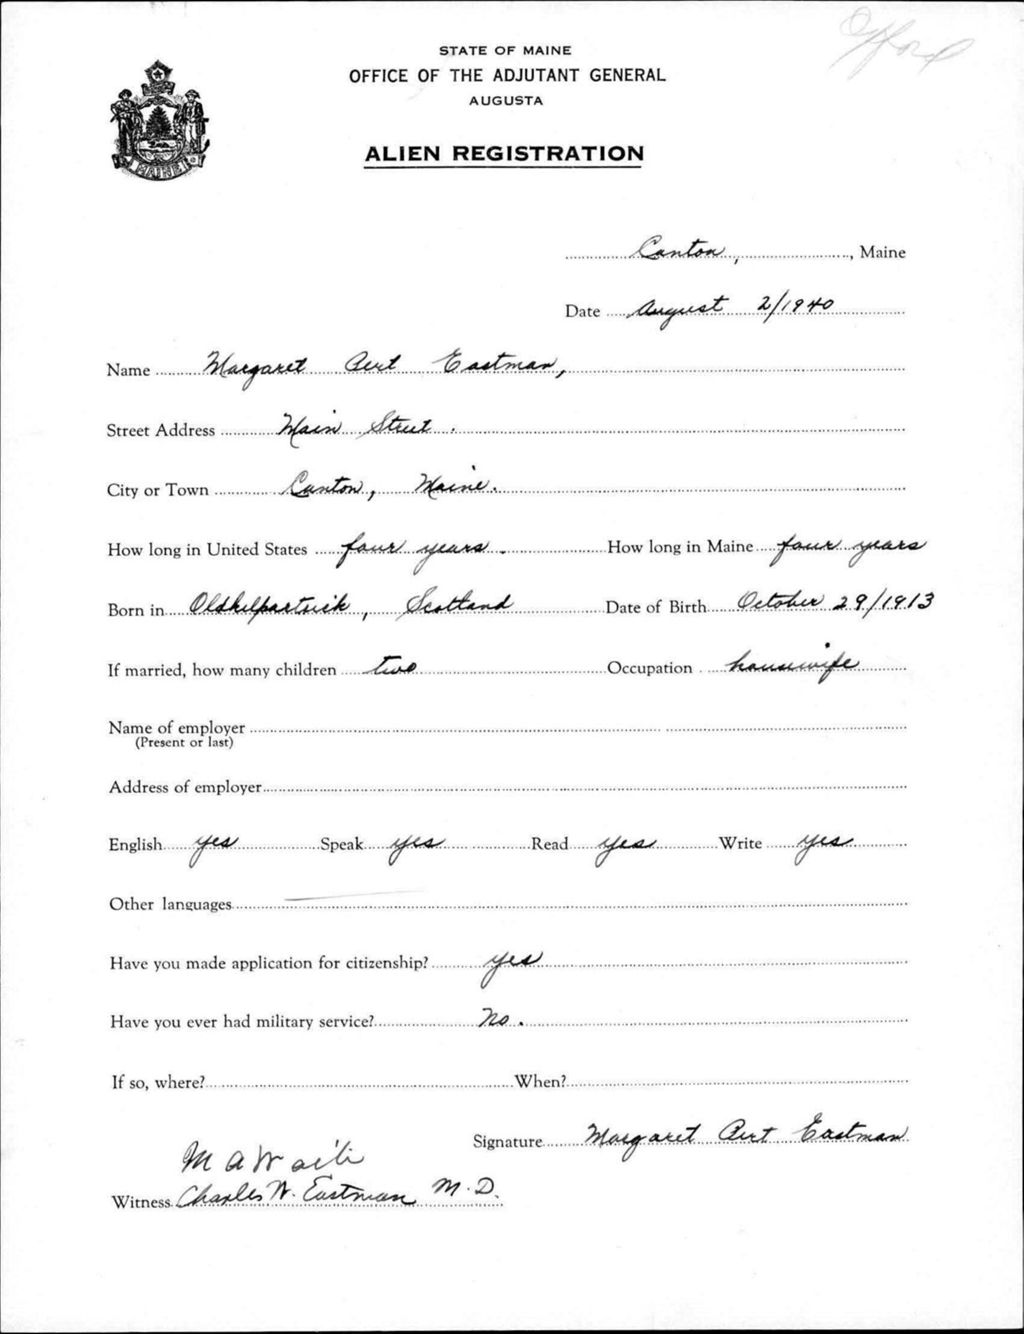 Oxford
STATE OF MAINE
OFFICE OF THE ADJUTANT GENERAL
AUGUSTA
ALIEN REGISTRATION
MAINE
Canton, , Maine
Date August 2/1940
Name Margaret Aert Eastman,
Street Address Main Street.
City or Town Canton, Maine.
How long in United States four years. How long in Maine four years
Born in Oldkilpartrick, Scotland Date of Birth October 29/1913
If married, how many children two Occupation housewife
Name of employer
(Present or last)
Address of employer
English yes Speak yes Read yes Write yes
Other languages
Have you made application for citizenship? yes
Have you ever had military service? No.
If so, where? When?
Signature Margaret Aert Eastman
M A Waite
Witness Charles W. Eastman M.D.